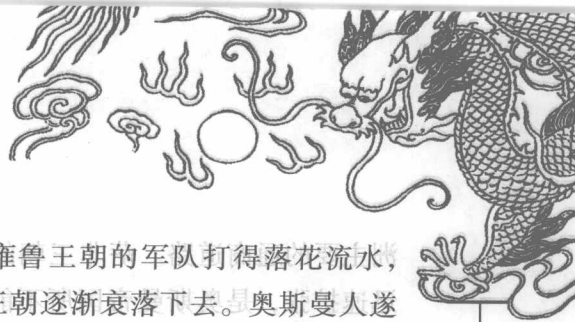 雍鲁王朝的军队打得落花流水，
王朝逐渐衰落下去。奥斯曼人遂